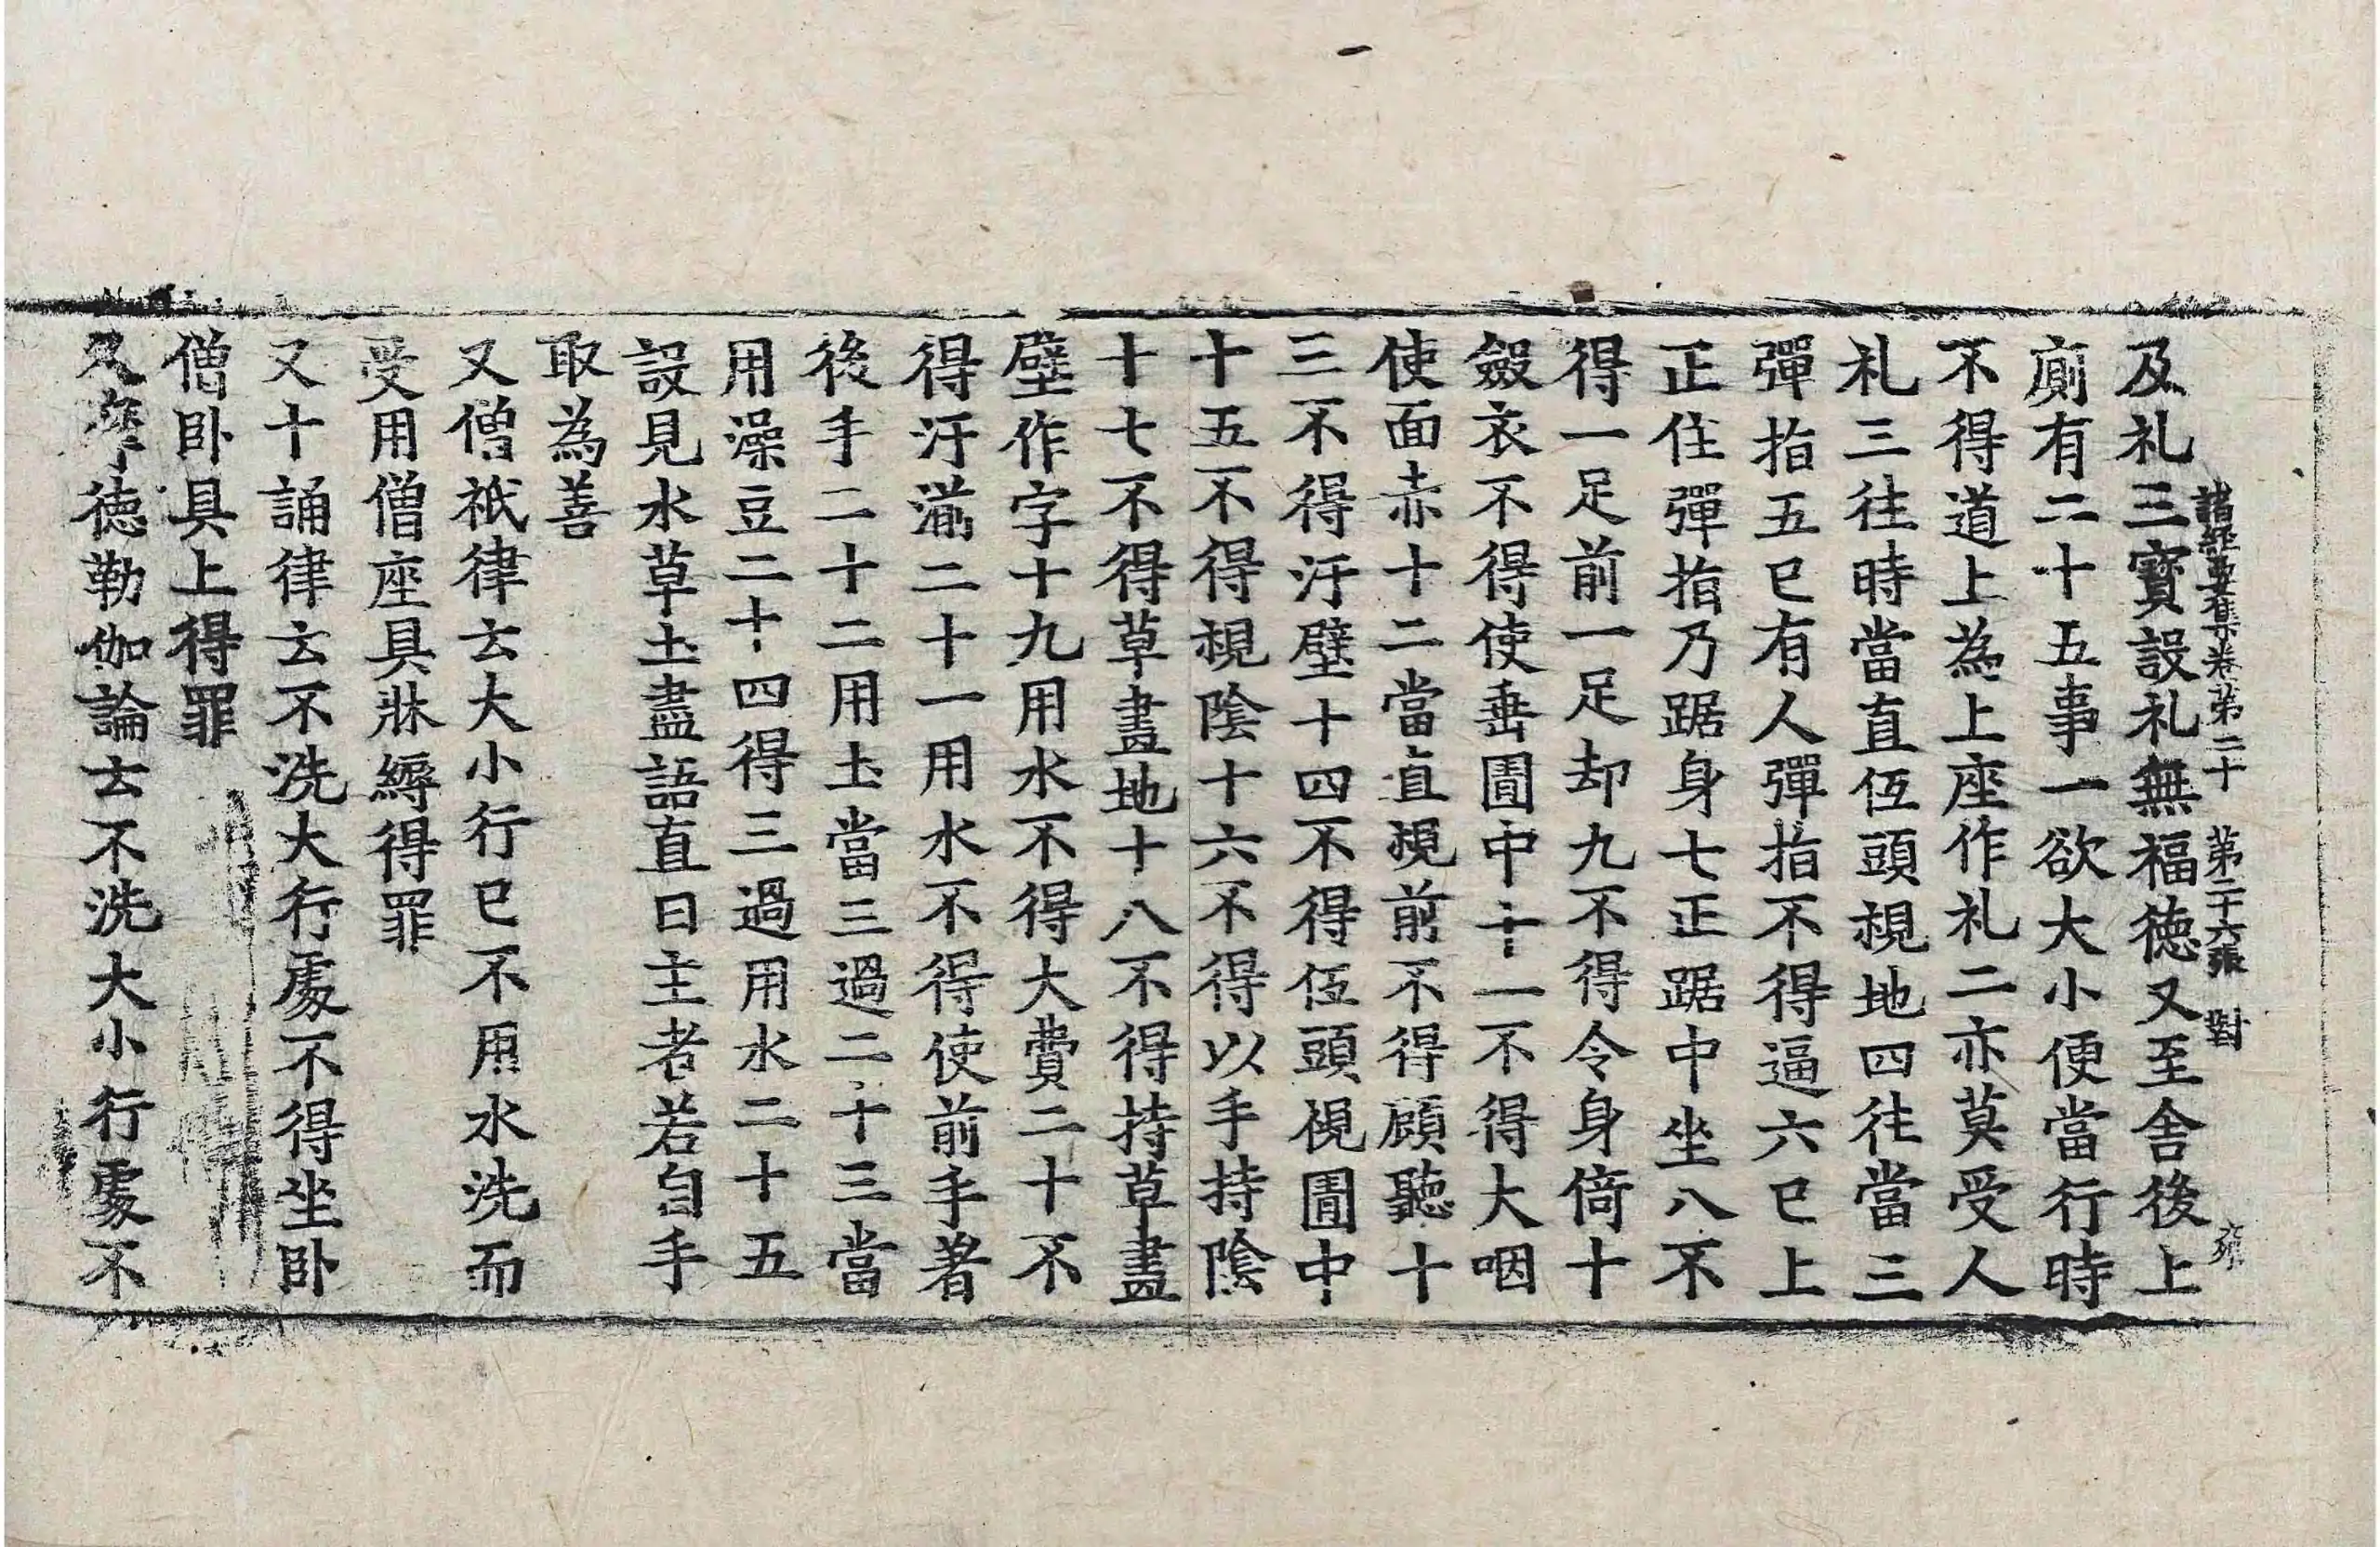 諸經要集卷第二十 第二十六張 對
及礼三寳設礼無福德又至舎後上
廁有二十五事一欲大小便當行時
不得道上為上座作礼二亦莫受人
礼三往時當直伍頭視地四往當三
彈指五已有人彈指不得逼六已上
正住彈指乃踞身七正踞中坐八不
得一足前一足却九不得令身倚十
斂衣不得使垂圊中十一不得大咽
使面赤十二當直視前不得顧聽十
三不得汙壁十四不得伍頭視圊中
十五不得視陰十六不得以手持陰
十七不得草畫地十八不得持草畫
壁作字十九用水不得大費二十不
得汙湍二十一用水不得使前手著
後手二十二用土當三過二十三當
用澡豆二十四得三過用水二十五
設見水草土盡語直日主者若自手
取為善
又僧祇律云大小行已不用水洗而
受用僧座具牀縟得罪
又十誦律云不洗大行處不得坐卧
僧卧具上得罪
又摩德勒伽論云不洗大小行處不